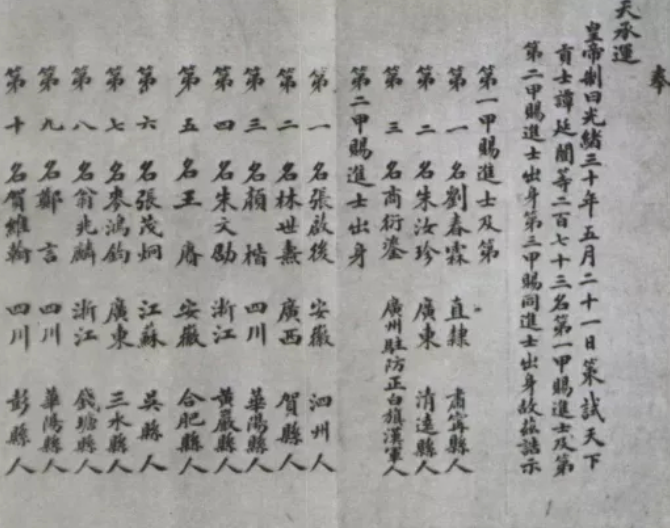 奉
天承運
皇帝制曰光緒三十年五月二十一日策試天下
貢士譚延闓等二百七十三名第一甲賜進士及第
第二甲賜進士出身第三甲賜同進士出身故茲誥示
第一甲賜進士及第
第一名劉春霖 直隸 肅寧縣人
第二名朱汝珍 廣東 清遠縣人
第三名商衍鎏 廣州駐防正白旗漢軍人
第二甲賜進士出身
第一名張啟後 安徽 泗州人
第二名林世燾 廣西 賀縣人
第三名顏楷 四川 華陽縣人
第四名朱文劭 浙江 黃巖縣人
第五名王賡 安徽 合肥縣人
第六名張茂炯 江蘇 吳縣人
第七名麥鴻鈞 廣東 三水縣人
第八名翁兆麟 浙江 錢塘縣人
第九名鄭言 四川 華陽縣人
第十名賀維翰 四川 彭縣人